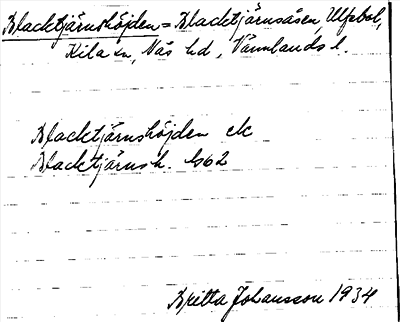 Blacktjärnshöjden = Blacktjärnsåsen, Ulfsbol,
Kila sn, Näs hd, Värmlands l.
Blacktjärnshöjden ek
Blacktjärnsh. G62
Britta Johansson 1934